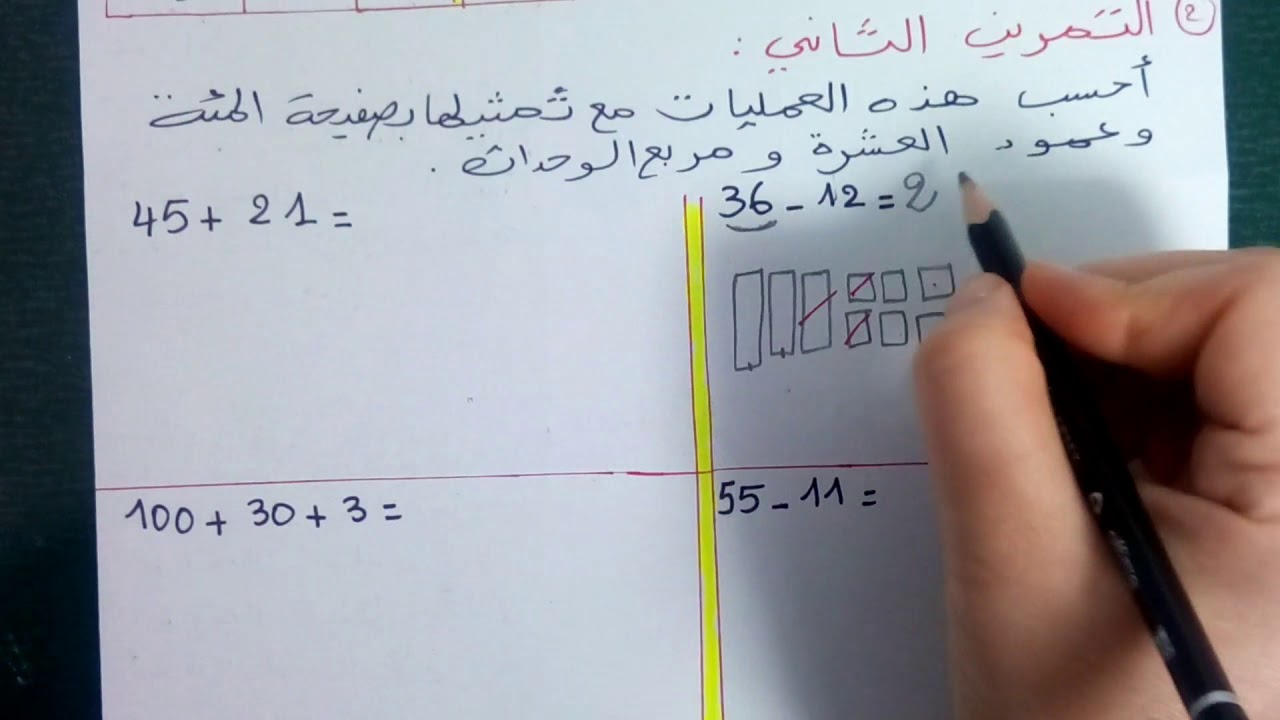 ② التمرين الثاني :
أحسب هذه العمليات مع تمثيلها بصفيحة المئة
وعمود العشرة و مربع الوحدات .
36 - 12 = 2
45 + 21 =
55 - 11 =
100 + 30 + 3 =